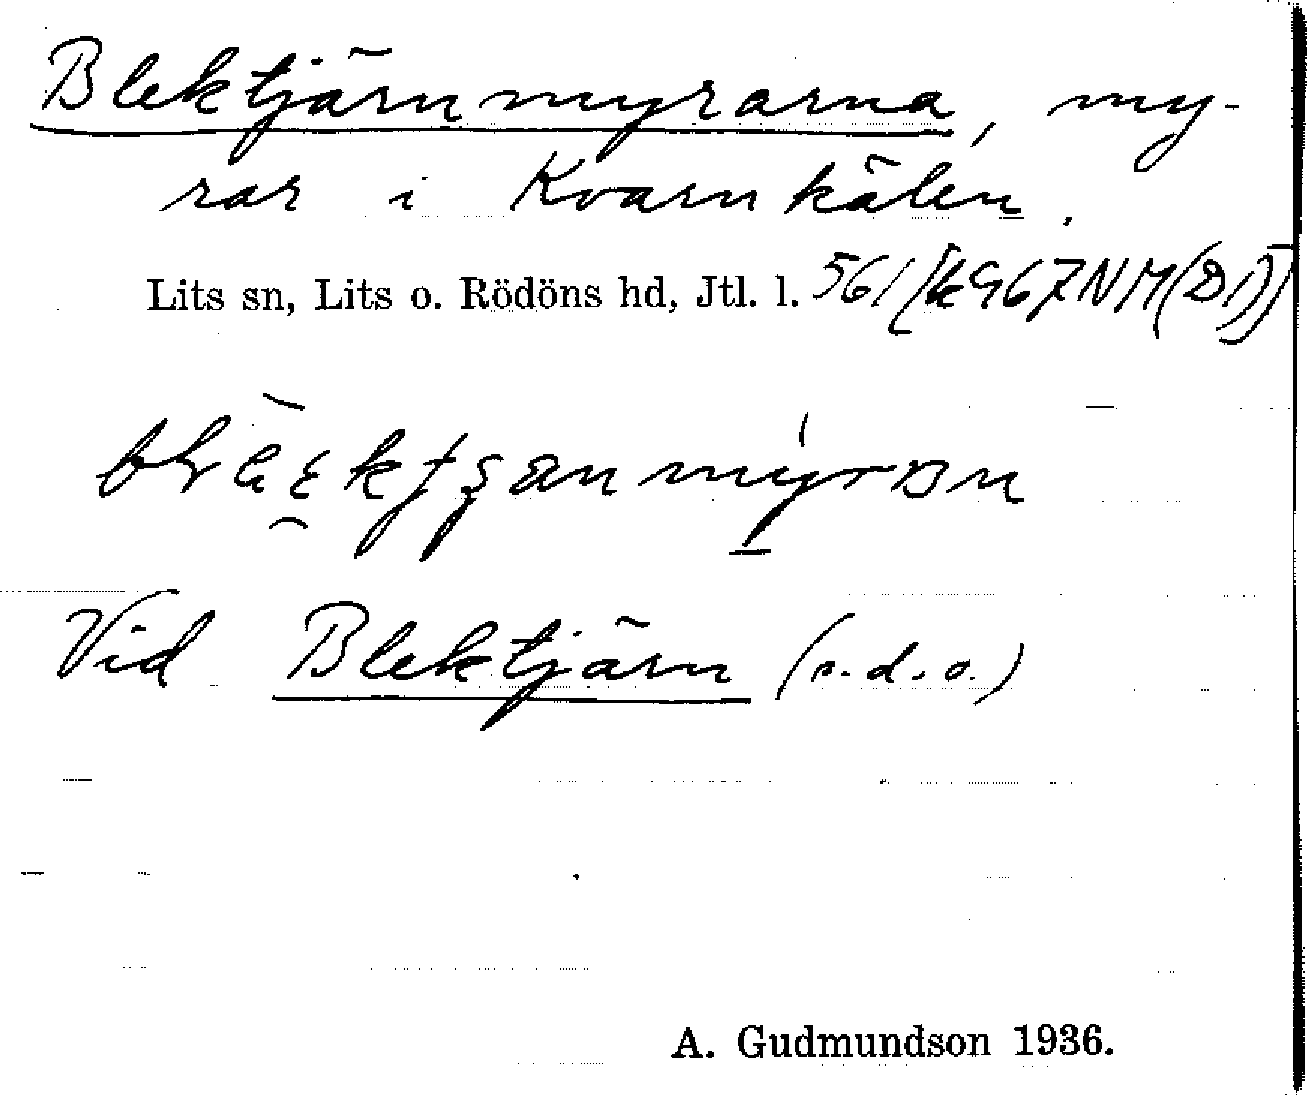 Blektjärnmyrarna, my-
rar i Kvarnkälen.
Lits sn, Lits o. Rödöns hd, Jtl. l. 561
Vid Blektjärn (s.d.o.)
A. Gudmundson 1936.